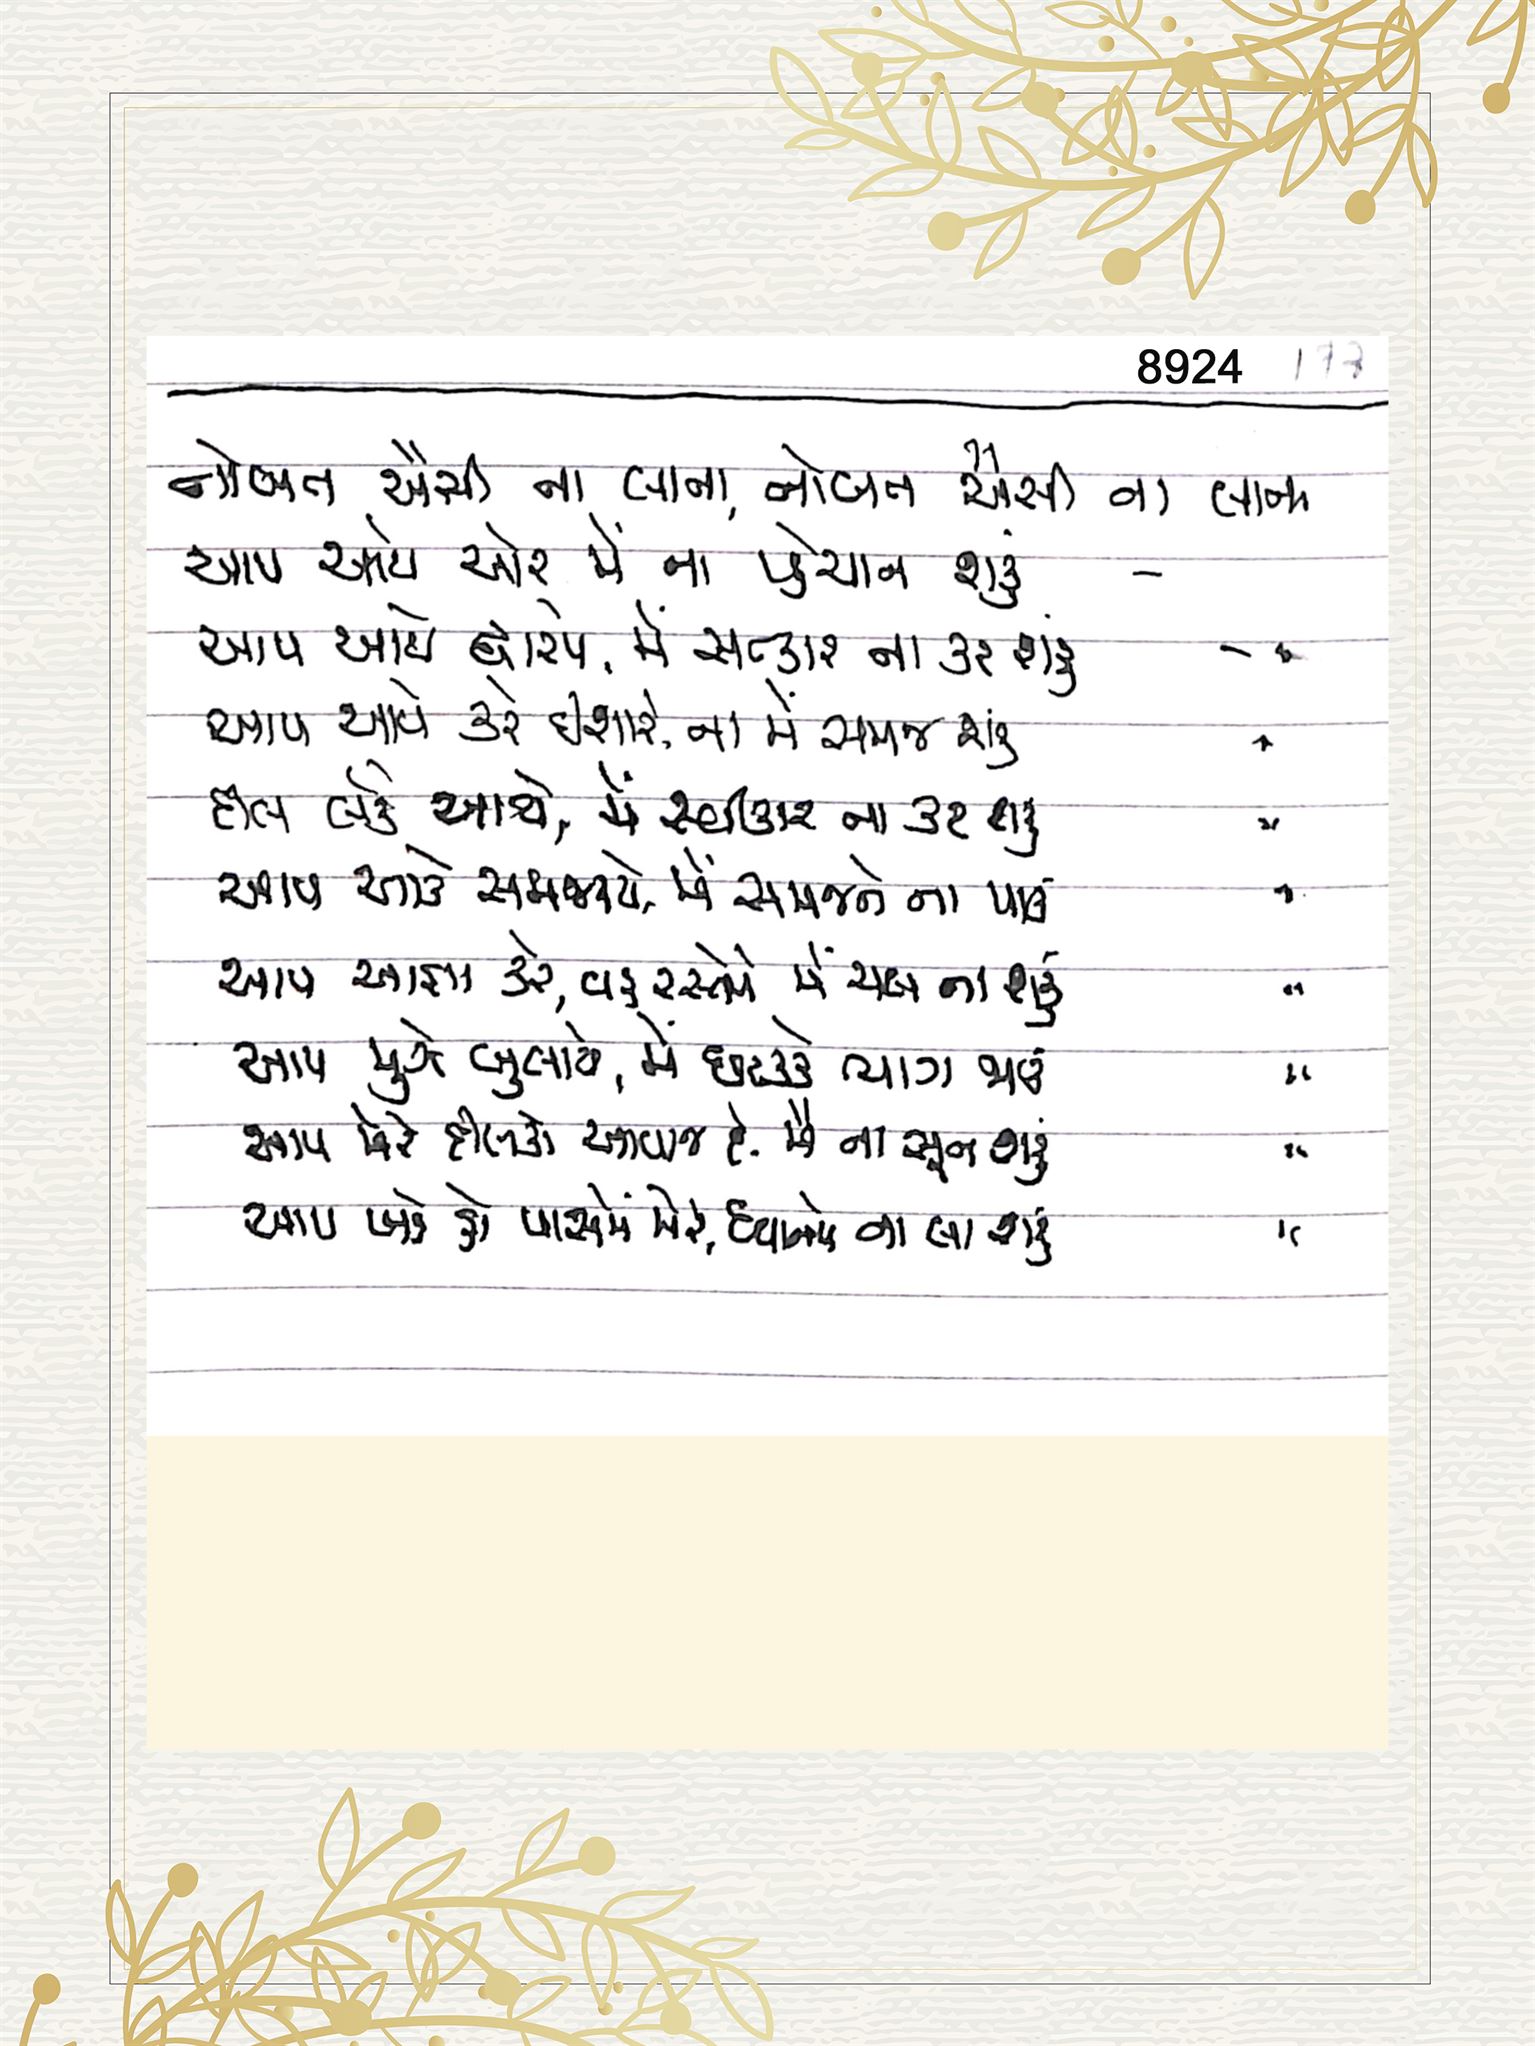 8924 173
નોબત ઐસી ના લાના, નોબત ઐસી ના લાના
આપ આયે ઓર મેં ના પહેચાન શકું —
આપ આયે દ્વારપે, મેં સત્કાર ના કર શકું — "
આપ આયે કરે ઈશારે, ના મેં સમજ શકું "
દીલ લેકે આયે, મેં સ્વીકાર ના કર શકું "
આપ આકે સમજાયે, મેં સમજને ના પાઉં "
આપ આજ્ઞા કરે, વહ રસ્તેમે મેં ચલ ના શકું "
આપ મુઝે બુલાયે, મેં છટકકે ભાગ જાઉં "
આપ મેરે દીલકી આવાજ હૈ. મૈં ના સૂન શકું "
આપ ખડે હો પાસમેં મેરે, ધ્યાનમેં ના લા શકું "